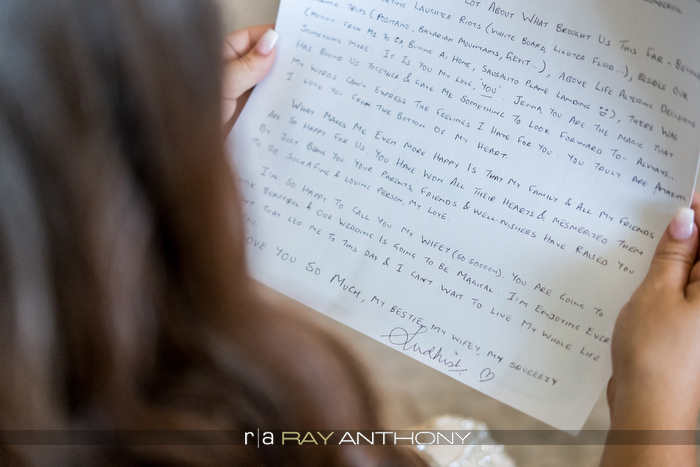 LOT ABOUT WHAT BROUGHT US THIS FAR - BEING
LAUGHTER RIOTS (WHITE BOARD, LIGHTER FLUID...), BESIDES OUR
TRIPS (POSITANO, BAVARIAN MOUNTAINS, GENT...), ABOVE LIFE ALTERING DECISIONS
(MOVING FROM MS TO CA, BUYING A HOME, SAUSALITO PLANE LANDING), THERE WAS
SOMETHING MORE. IT IS YOU MY LOVE, 'YOU'. JENNA YOU ARE THE MAGIC THAT
HAS BOUND US TOGETHER & GAVE ME SOMETHING TO LOOK FORWARD TO - ALWAYS...
MY WORDS CAN'T EXPRESS THE FEELINGS I HAVE FOR YOU. YOU TRULY ARE AMAZING
I LOVE YOU FROM THE BOTTOM OF MY HEART.
WHAT MAKES ME EVEN MORE HAPPY IS THAT MY FAMILY & ALL MY FRIENDS
ARE SO HAPPY FOR US. YOU HAVE WON ALL THEIR HEARTS & MESMERIZED THEM
BY JUST BEING YOU. YOUR PARENTS, FRIENDS & WELL-WISHERS HAVE RAISED YOU
TO BE SUCH A FINE & LOVING PERSON, MY LOVE.
I'M SO HAPPY TO CALL YOU MY WIFEY (SO SOOOON). YOU ARE GOING TO
LOOK BEAUTIFUL & OUR WEDDING IS GOING TO BE MAGICAL. I'M ENJOYING EVERY
THAT LED ME TO THIS DAY & I CAN'T WAIT TO LIVE MY WHOLE LIFE
YOU.
LOVE YOU SO MUCH, MY BESTIE, MY WIFEY, MY SQUEEZY
♡
r|a RAY ANTHONY